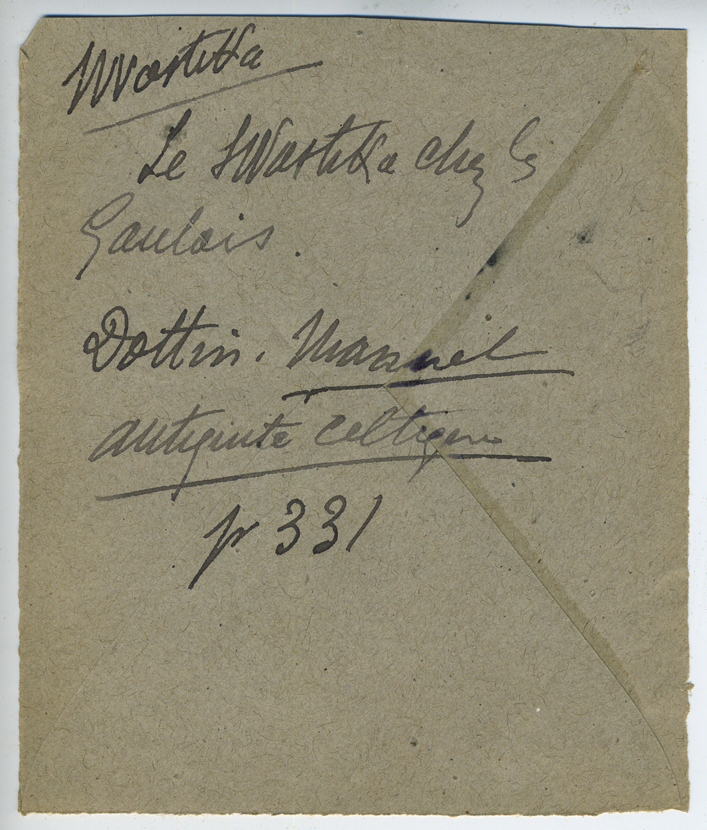 Swastika
Le Swastika chez les
Gaulois.
Dottin. Manuel
antiquité celtique
p 331